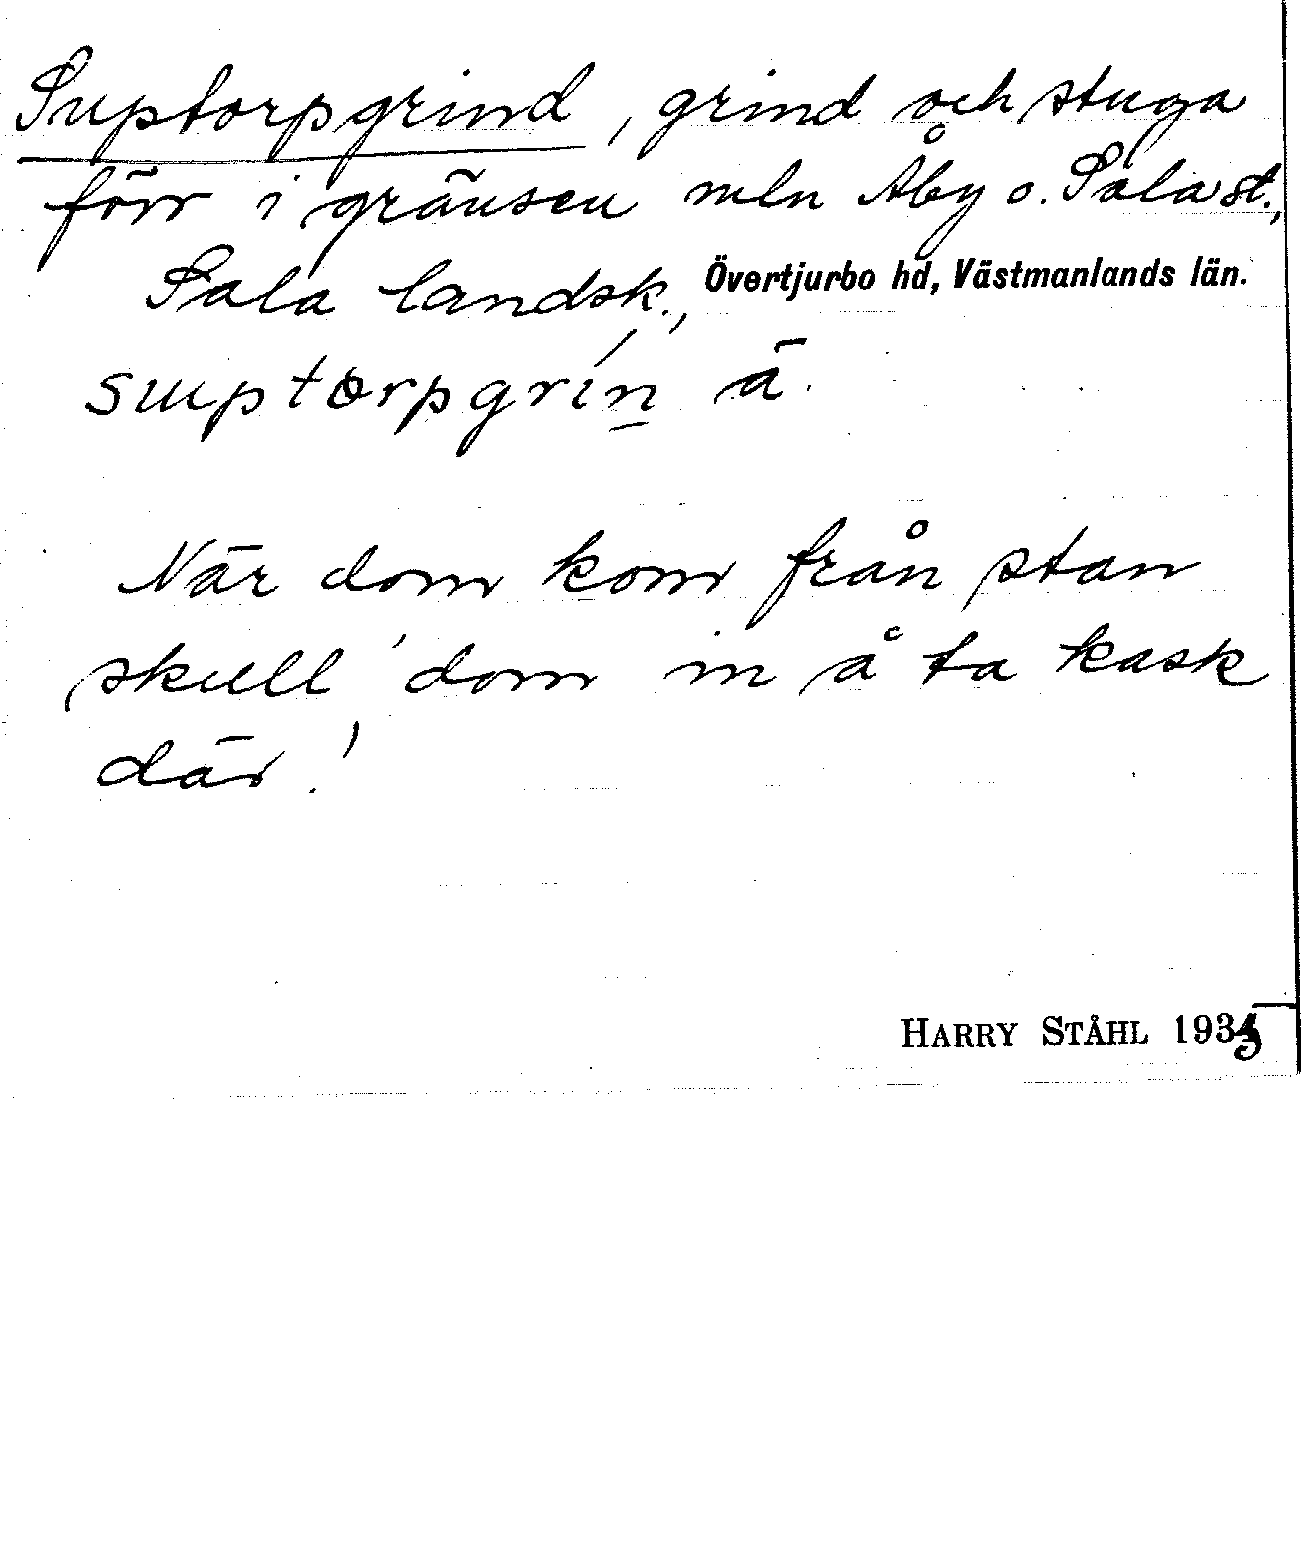 Suptorpgrind, grind och stuga
förr i gränsen mln Åby o. Sala st.,
Sala landsk., Övertjurbo hd, Västmanlands län.
suptorpgrín ä.
När dom kom från stan
skull' dom in å ta kask
där!
HARRY STÅHL 1935